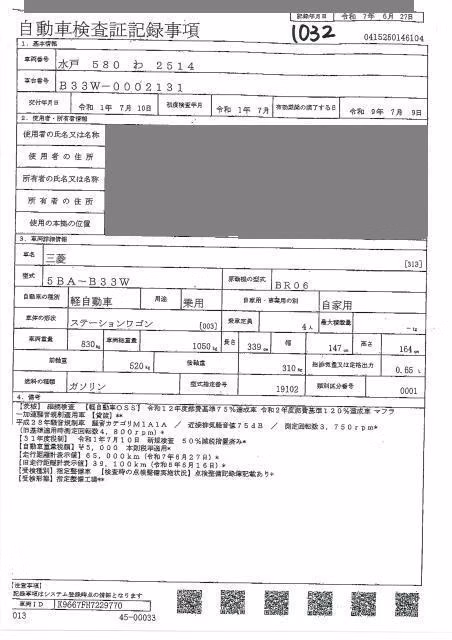 記録年月日 令和 7年 6月 27日
自動車検査証記録事項
1032
0415250146104
1. 基本情報
車両番号 水戸 580 わ 2514
車台番号 B33W-0002131
交付年月日 令和 1年 7月 10日 初度検査年月 令和 1年 7月 有効期間の満了する日 令和 9年 7月 9日
2. 使用者・所有者情報
使用者の氏名又は名称
使用者の住所
所有者の氏名又は名称
所有者の住所
使用の本拠の位置
3. 車両詳細情報
車名 三菱 [313]
型式 5BA-B33W 原動機の型式 BR06
自動車の種別 軽自動車 用途 乗用 自家用・事業用の別 自家用
車体の形状 ステーションワゴン [003] 乗車定員 4人 最大積載量 -kg
車両重量 830kg 車両総重量 1050kg 長さ 339cm 幅 147cm 高さ 164cm
前軸重 520kg 後軸重 310kg 総排気量又は定格出力 0.65 L
燃料の種類 ガソリン 型式指定番号 19102 類別区分番号 0001
4. 備考
【茨城】 継続検査 【軽自動車OSS】 令和12年度燃費基準75%達成車 令和2年度燃費基準120%達成車 マフラ
ー加速騒音規制適用車 【貨箱】**
平成28年騒音規制車 騒音カテゴリM1A1A / 近接排気騒音値75dB / 測定回転数3,750rpm*
(旧基準適用時測定回転数4,800rpm)*
【31年度税制】 令和1年7月10日 新規検査 50%減税措置済み*
【自動車重量税額】 ¥5,000 本則税率適用*
【走行距離計表示値】 65,000km (令和7年6月27日)*
【旧走行距離計表示値】 39,100km (令和5年6月16日)*
【受検種別】 指定整備車 【検査時の点検整備実施状況】 点検整備記録簿記載あり*
【受検形態】 指定整備工場**
【注意事項】
記録事項はシステム登録時点の情報となります
車両ID K9667FH7229770
013 45-00033